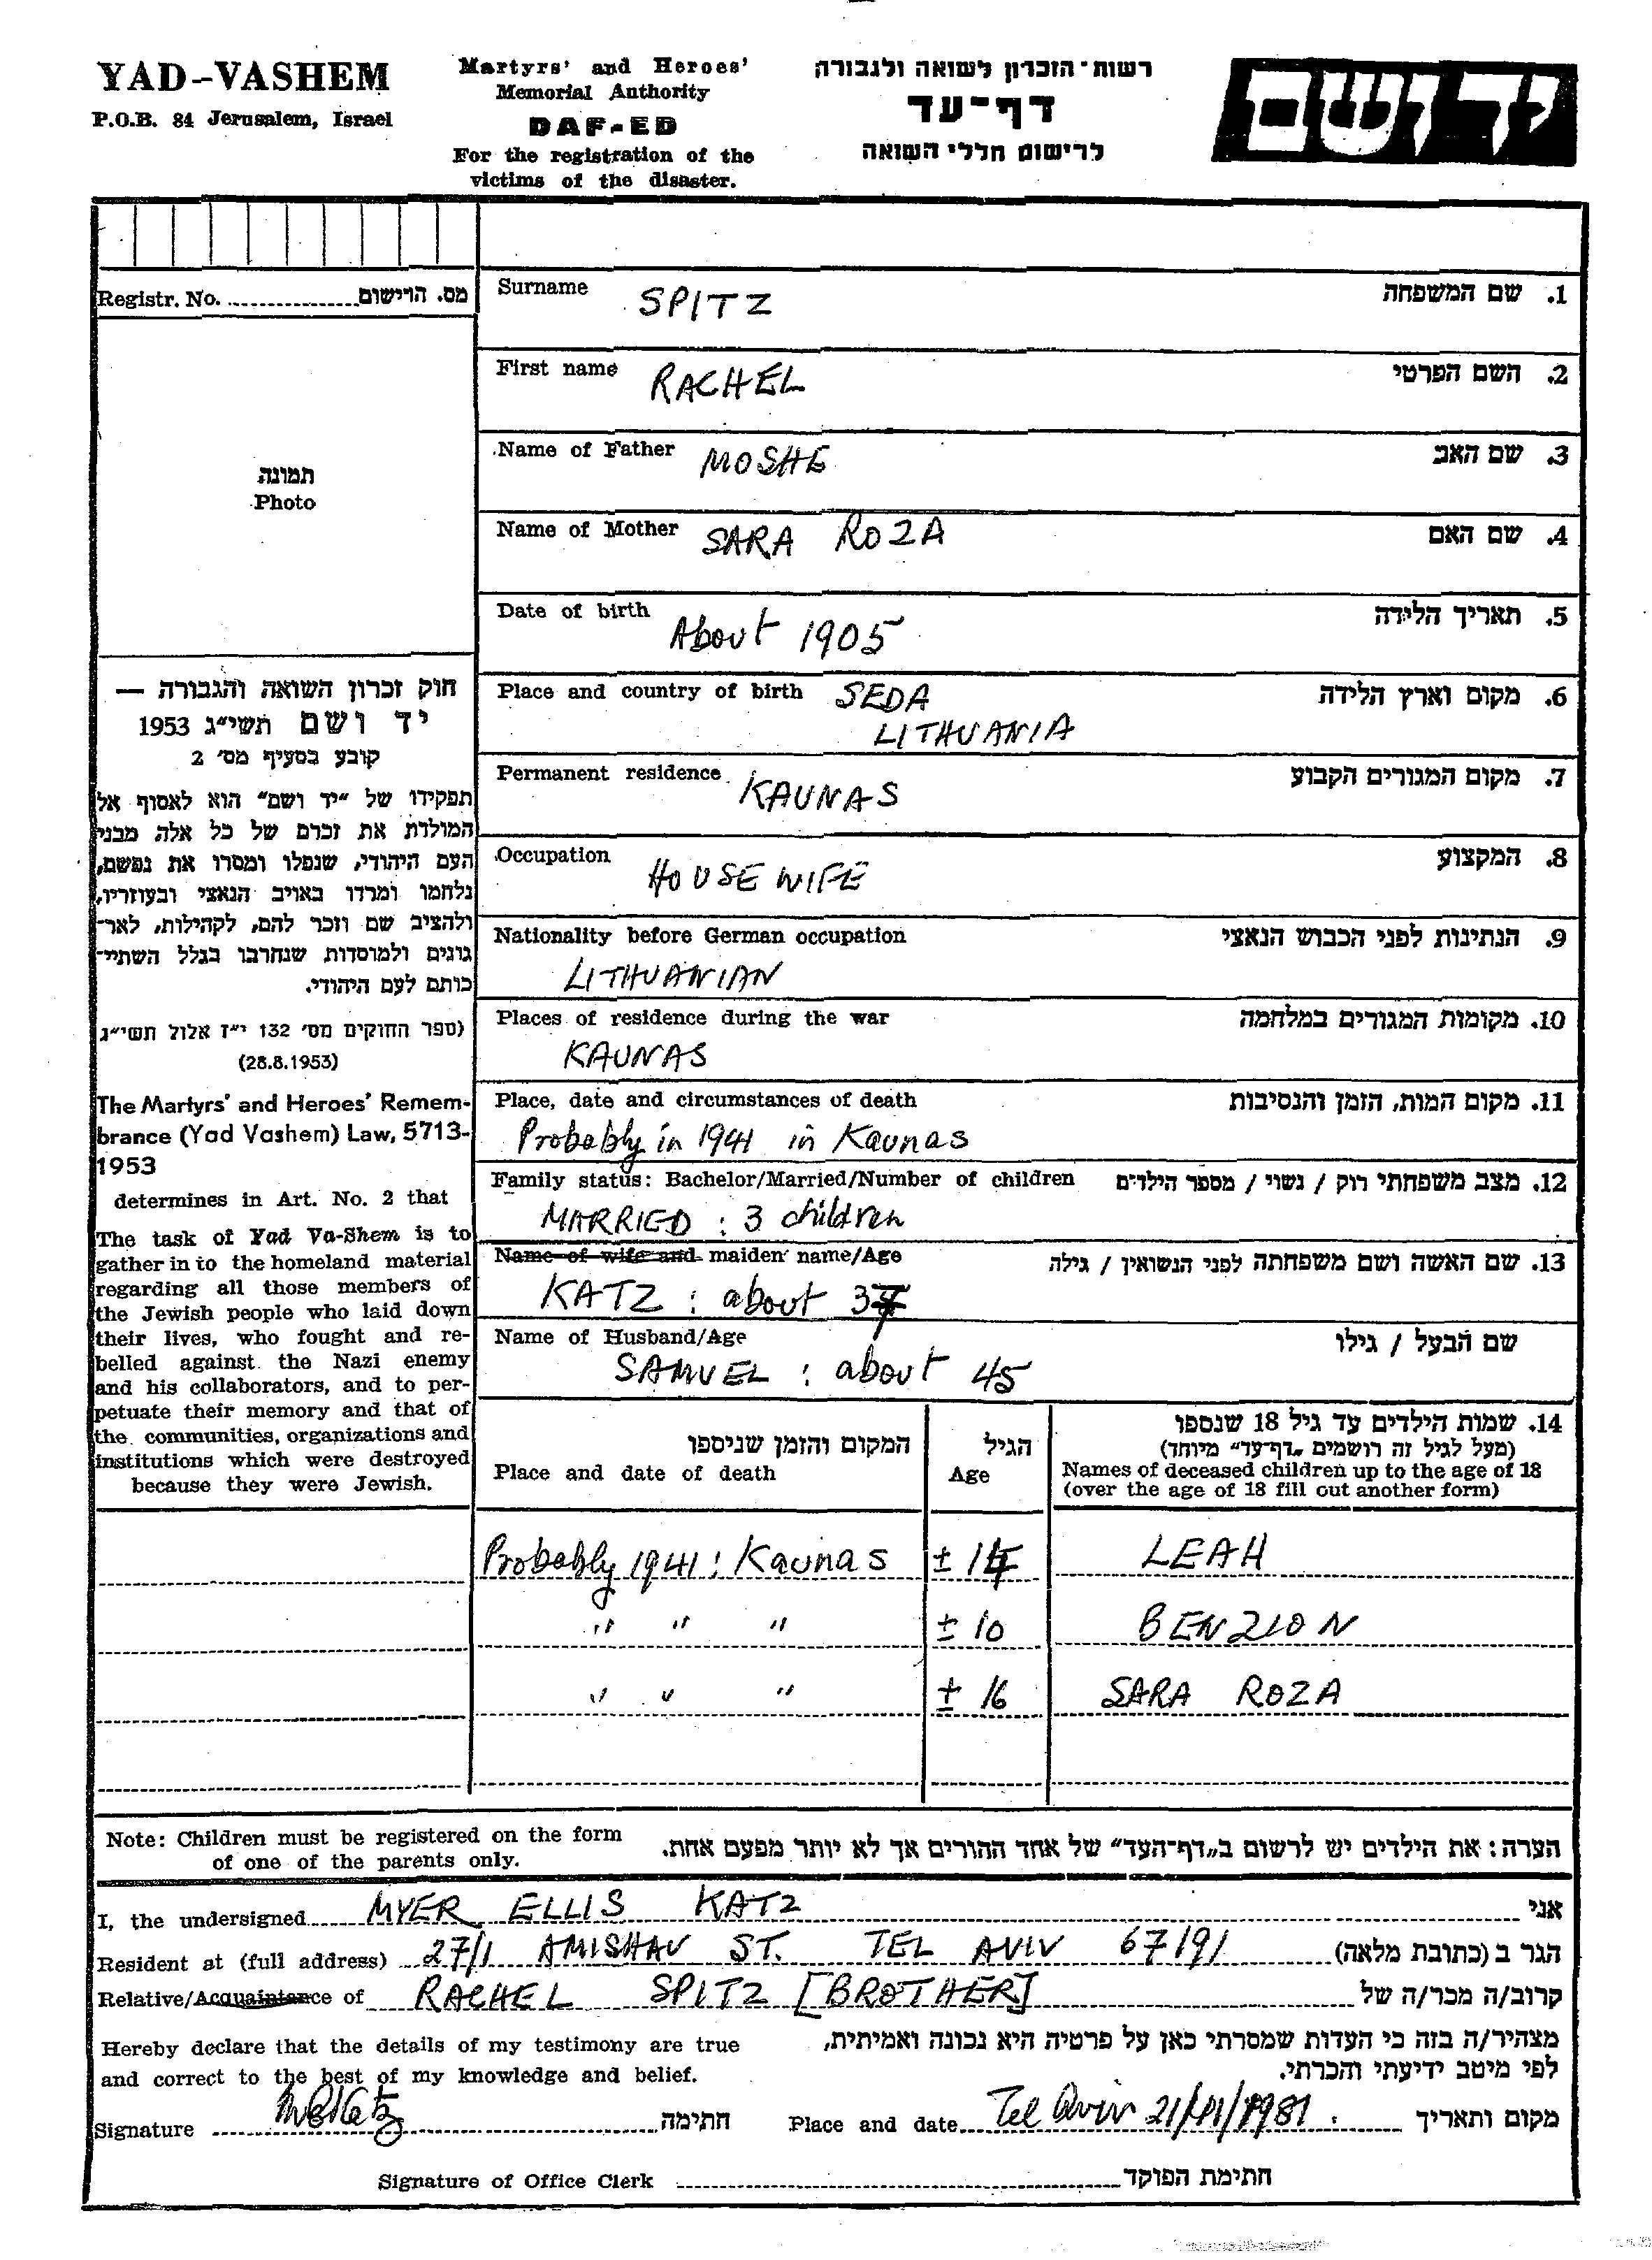 YAD-VASHEM
P.O.B. 84 Jerusalem, Israel
Martyrs' and Heroes'
Memorial Authority
DAF-ED
For the registration of the
victims of the disaster.
רשות־הזכרון לשואה ולגבורה
דף־עד
לרישום חללי השואה
יד ושם
Registr. No. מס. הרישום
תמונה
Photo
חוק זכרון השואה והגבורה —
יד ושם תשי״ג 1953
קובע בסעיף מס׳ 2
תפקידו של ״יד ושם״ הוא לאסוף אל
המולדת את זכרם של כל אלה מבני
העם היהודי, שנפלו ומסרו את נפשם,
נלחמו ומרדו באויב הנאצי ובעוזריו,
ולהציב שם וזכר להם, לקהילות, לאר־
גונים ולמוסדות שנחרבו בגלל השתיי־
כותם לעם היהודי.
(ספר החוקים מס׳ 132 י״ז אלול תשי״ג
(28.8.1953)
The Martyrs' and Heroes' Remem-
brance (Yad Vashem) Law, 5713-
1953
determines in Art. No. 2 that
The task of Yad Va-Shem is to
gather in to the homeland material
regarding all those members of
the Jewish people who laid down
their lives, who fought and re-
belled against the Nazi enemy
and his collaborators, and to per-
petuate their memory and that of
the communities, organizations and
institutions which were destroyed
because they were Jewish.
Surname SPITZ 1. שם המשפחה
First name RACHEL 2. השם הפרטי
Name of Father MOSHE 3. שם האב
Name of Mother SARA ROZA 4. שם האם
Date of birth About 1905 5. תאריך הלידה
Place and country of birth SEDA 6. מקום וארץ הלידה
LITHUANIA
Permanent residence KAUNAS 7. מקום המגורים הקבוע
Occupation HOUSEWIFE 8. המקצוע
Nationality before German occupation 9. הנתינות לפני הכבוש הנאצי
LITHUANIAN
Places of residence during the war 10. מקומות המגורים במלחמה
KAUNAS
Place, date and circumstances of death 11. מקום המות, הזמן והנסיבות
Probably in 1941 in Kaunas
Family status: Bachelor/Married/Number of children 12. מצב משפחתי רוק / נשוי / מספר הילדים
MARRIED : 3 children
Name of wife and maiden name/Age 13. שם האשה ושם משפחתה לפני הנשואין / גילה
KATZ : about 37
Name of Husband/Age שם הבעל / גילו
SAMUEL : about 45
המקום והזמן שניספו
Place and date of death
הגיל
Age
14. שמות הילדים עד גיל 18 שנספו
(מעל לגיל זה רושמים „דף־עד״ מיוחד)
Names of deceased children up to the age of 18
(over the age of 18 fill out another form)
Probably 1941 : Kaunas ± 14 LEAH
" " " ± 10 BENZION
" " " ± 16 SARA ROZA
Note: Children must be registered on the form
of one of the parents only.
הערה: את הילדים יש לרשום ב„דף־העד״ של אחד ההורים אך לא יותר מפעם אחת.
I, the undersigned MYER ELLIS KATZ אני
Resident at (full address) 27/1 AMISHAV ST. TEL AVIV 67191 הגר ב (כתובת מלאה)
Relative/Acquaintance of RACHEL SPITZ [BROTHER] קרוב/ה מכר/ה של
Hereby declare that the details of my testimony are true
and correct to the best of my knowledge and belief.
מצהיר/ה בזה כי העדות שמסרתי כאן על פרטיה היא נכונה ואמיתית,
לפי מיטב ידיעתי והכרתי.
Signature MEKatz חתימה Place and date Tel Aviv 1981 מקום ותאריך
Signature of Office Clerk חתימת הפוקד